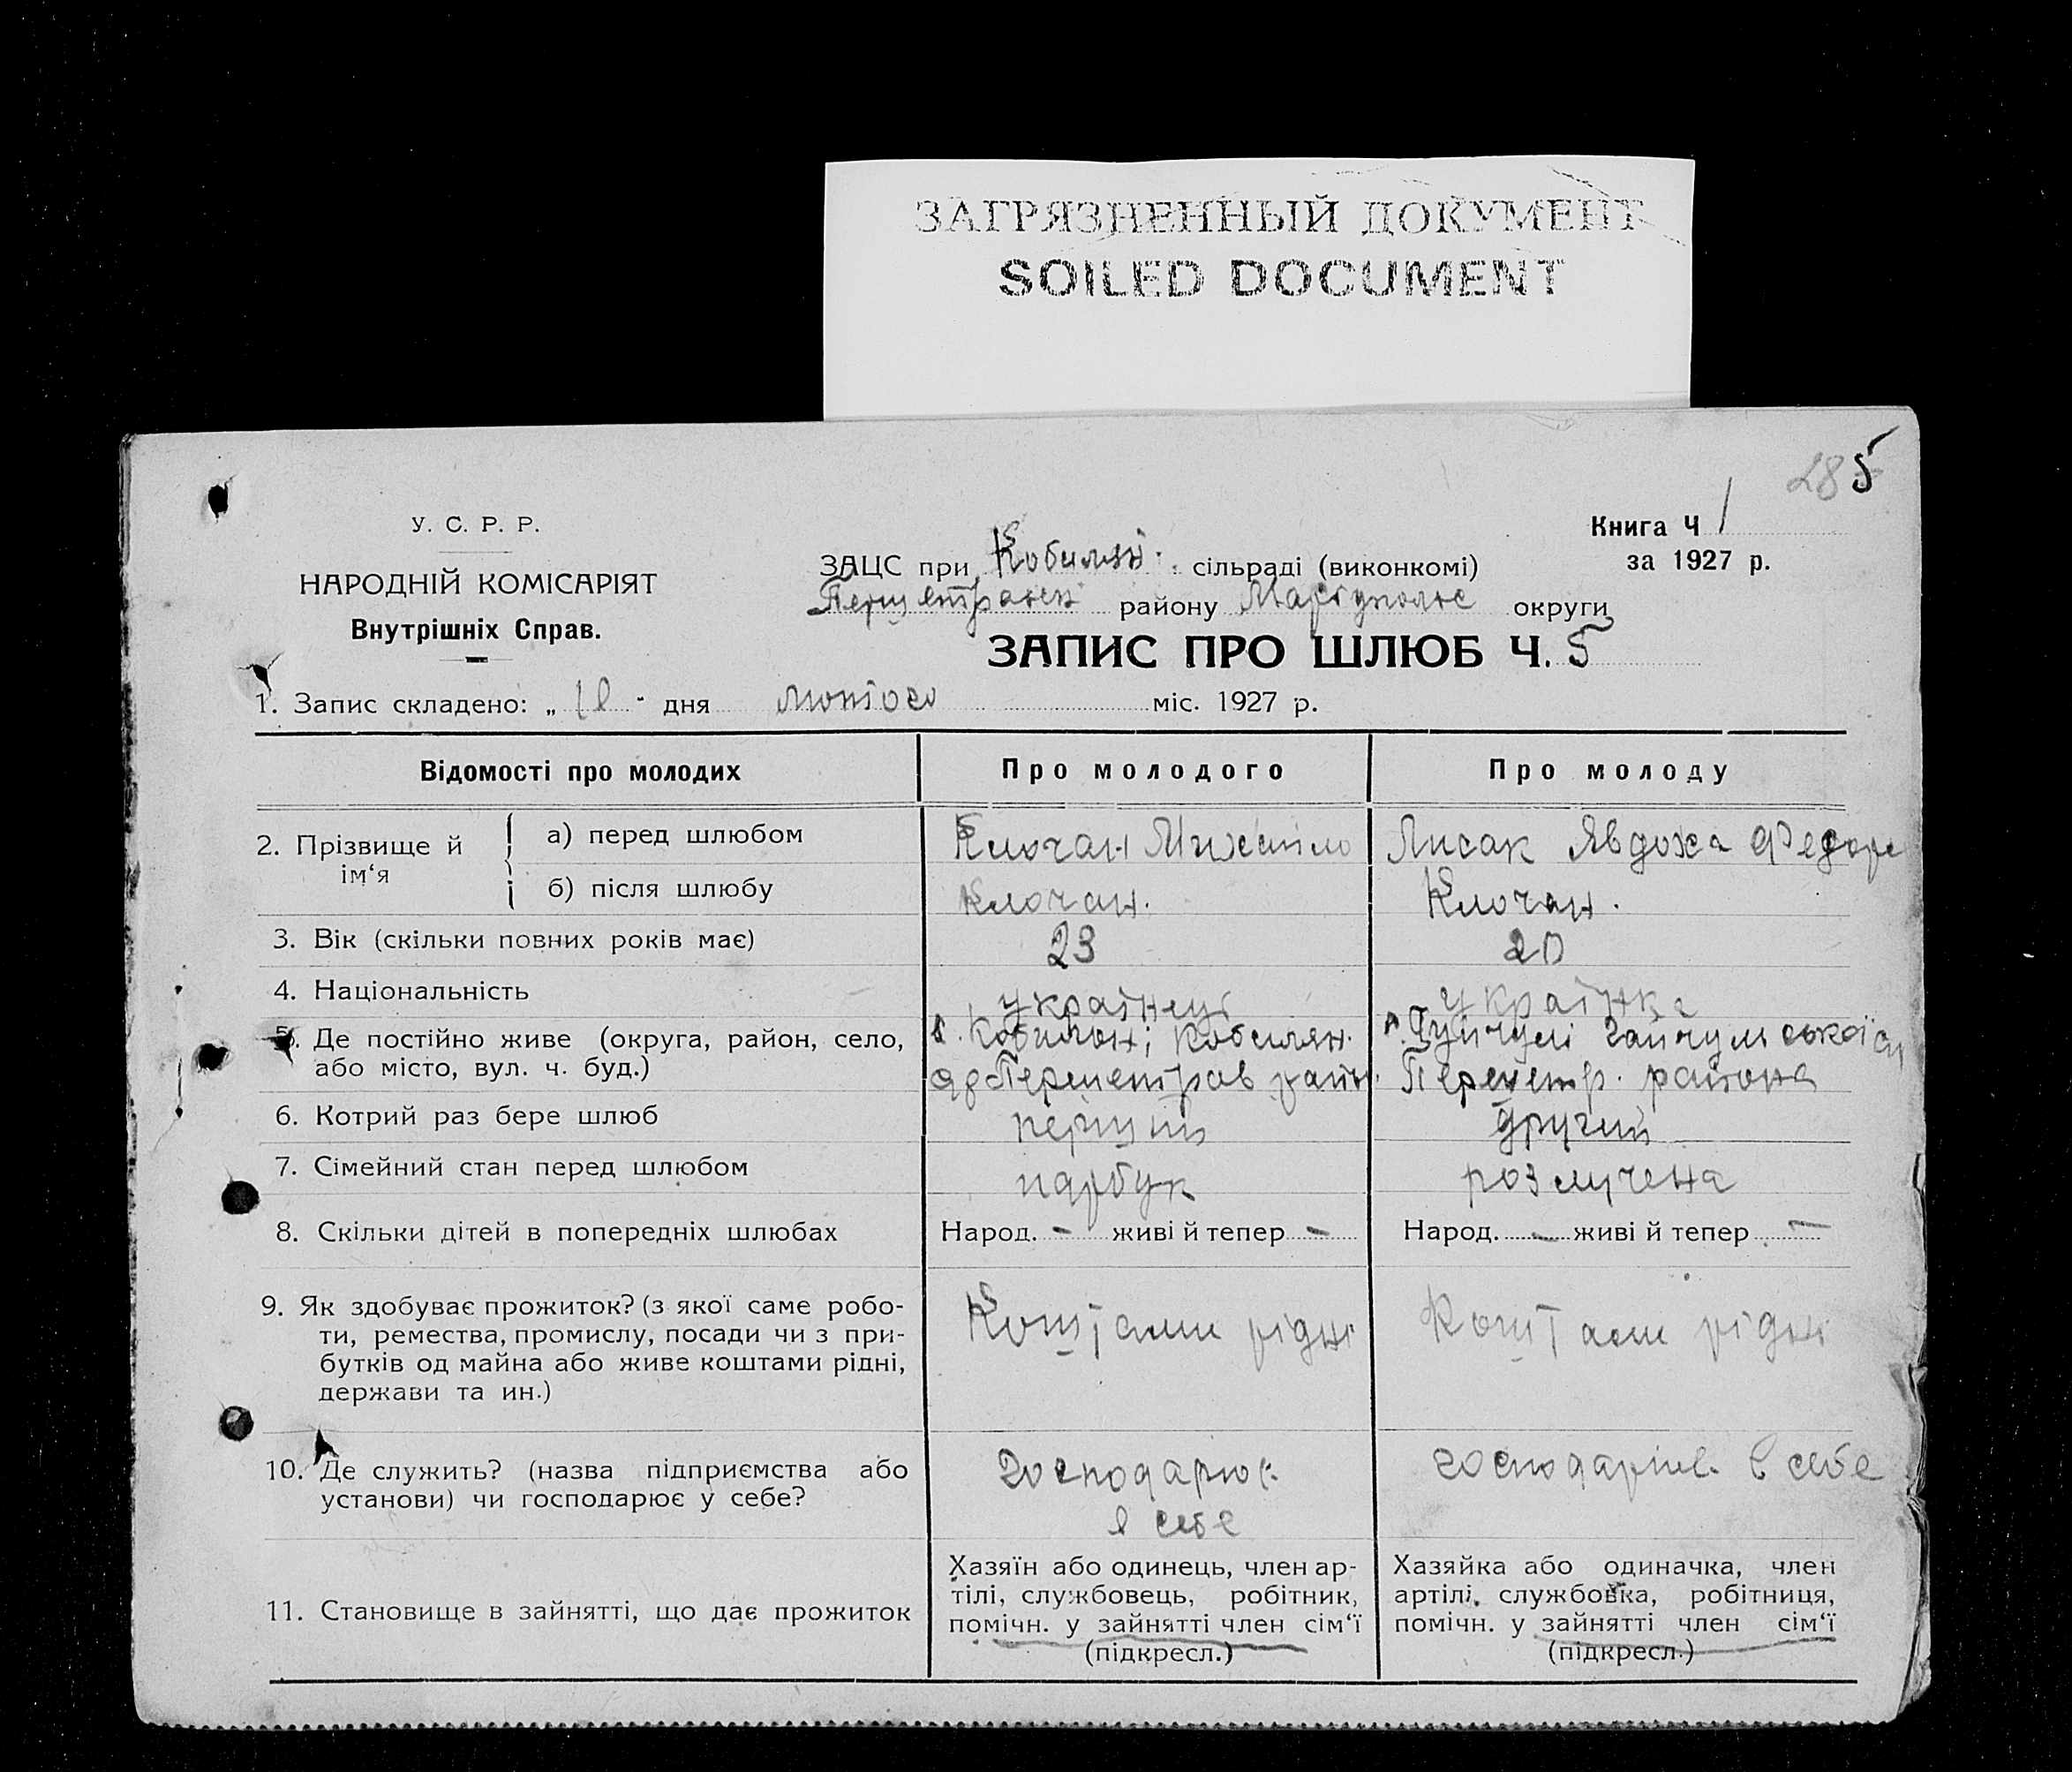 ЗАГРЯЗНЕННЫЙ ДОКУМЕНТ
SOILED DOCUMENT
28 5
У. С. Р. Р.
НАРОДНІЙ КОМІСАРІЯТ
Внутрішніх Справ.
Книга Ч 1
за 1927 р.
ЗАЦС при Кобилян. сільраді (виконкомі)
району Маріуполс округи
ЗАПИС ПРО ШЛЮБ Ч. 5
1. Запис складено: „ - дня лютого міс. 1927 р.
Відомості про молодих
Про молодого
Про молоду
2. Прізвище й ім‘я
а) перед шлюбом
Клочан Михайло
Лисак Явдоха Федор
б) після шлюбу
Клочан.
Клочан.
3. Вік (скільки повних років має)
23
20
4. Національність
українець
українка
5. Де постійно живе (округа, район, село,
або місто, вул. ч. буд.)
Кобилян.
район.
района
6. Котрий раз бере шлюб
перший
другий
7. Сімейний стан перед шлюбом
парубук
розлучена
8. Скільки дітей в попередніх шлюбах
Народ. - живі й тепер -
Народ. - живі й тепер -
9. Як здобуває прожиток? (з якої саме робо-
ти, ремества, промислу, посади чи з при-
бутків од майна або живе коштами рідні,
держави та ин.)
Коштами рідні
Коштами рідні
10. Де служить? (назва підприємства або
установи) чи господарює у себе?
господарює
в себе
в себе
11. Становище в зайнятті, що дає прожиток
Хазяїн або одинець, член ар-
тілі, службовець, робітник,
помічн. у зайнятті член сім‘ї
(підкресл.)
Хазяйка або одиначка, член
артілі, службовка, робітниця,
помічн. у зайнятті член сім‘ї
(підкресл.)